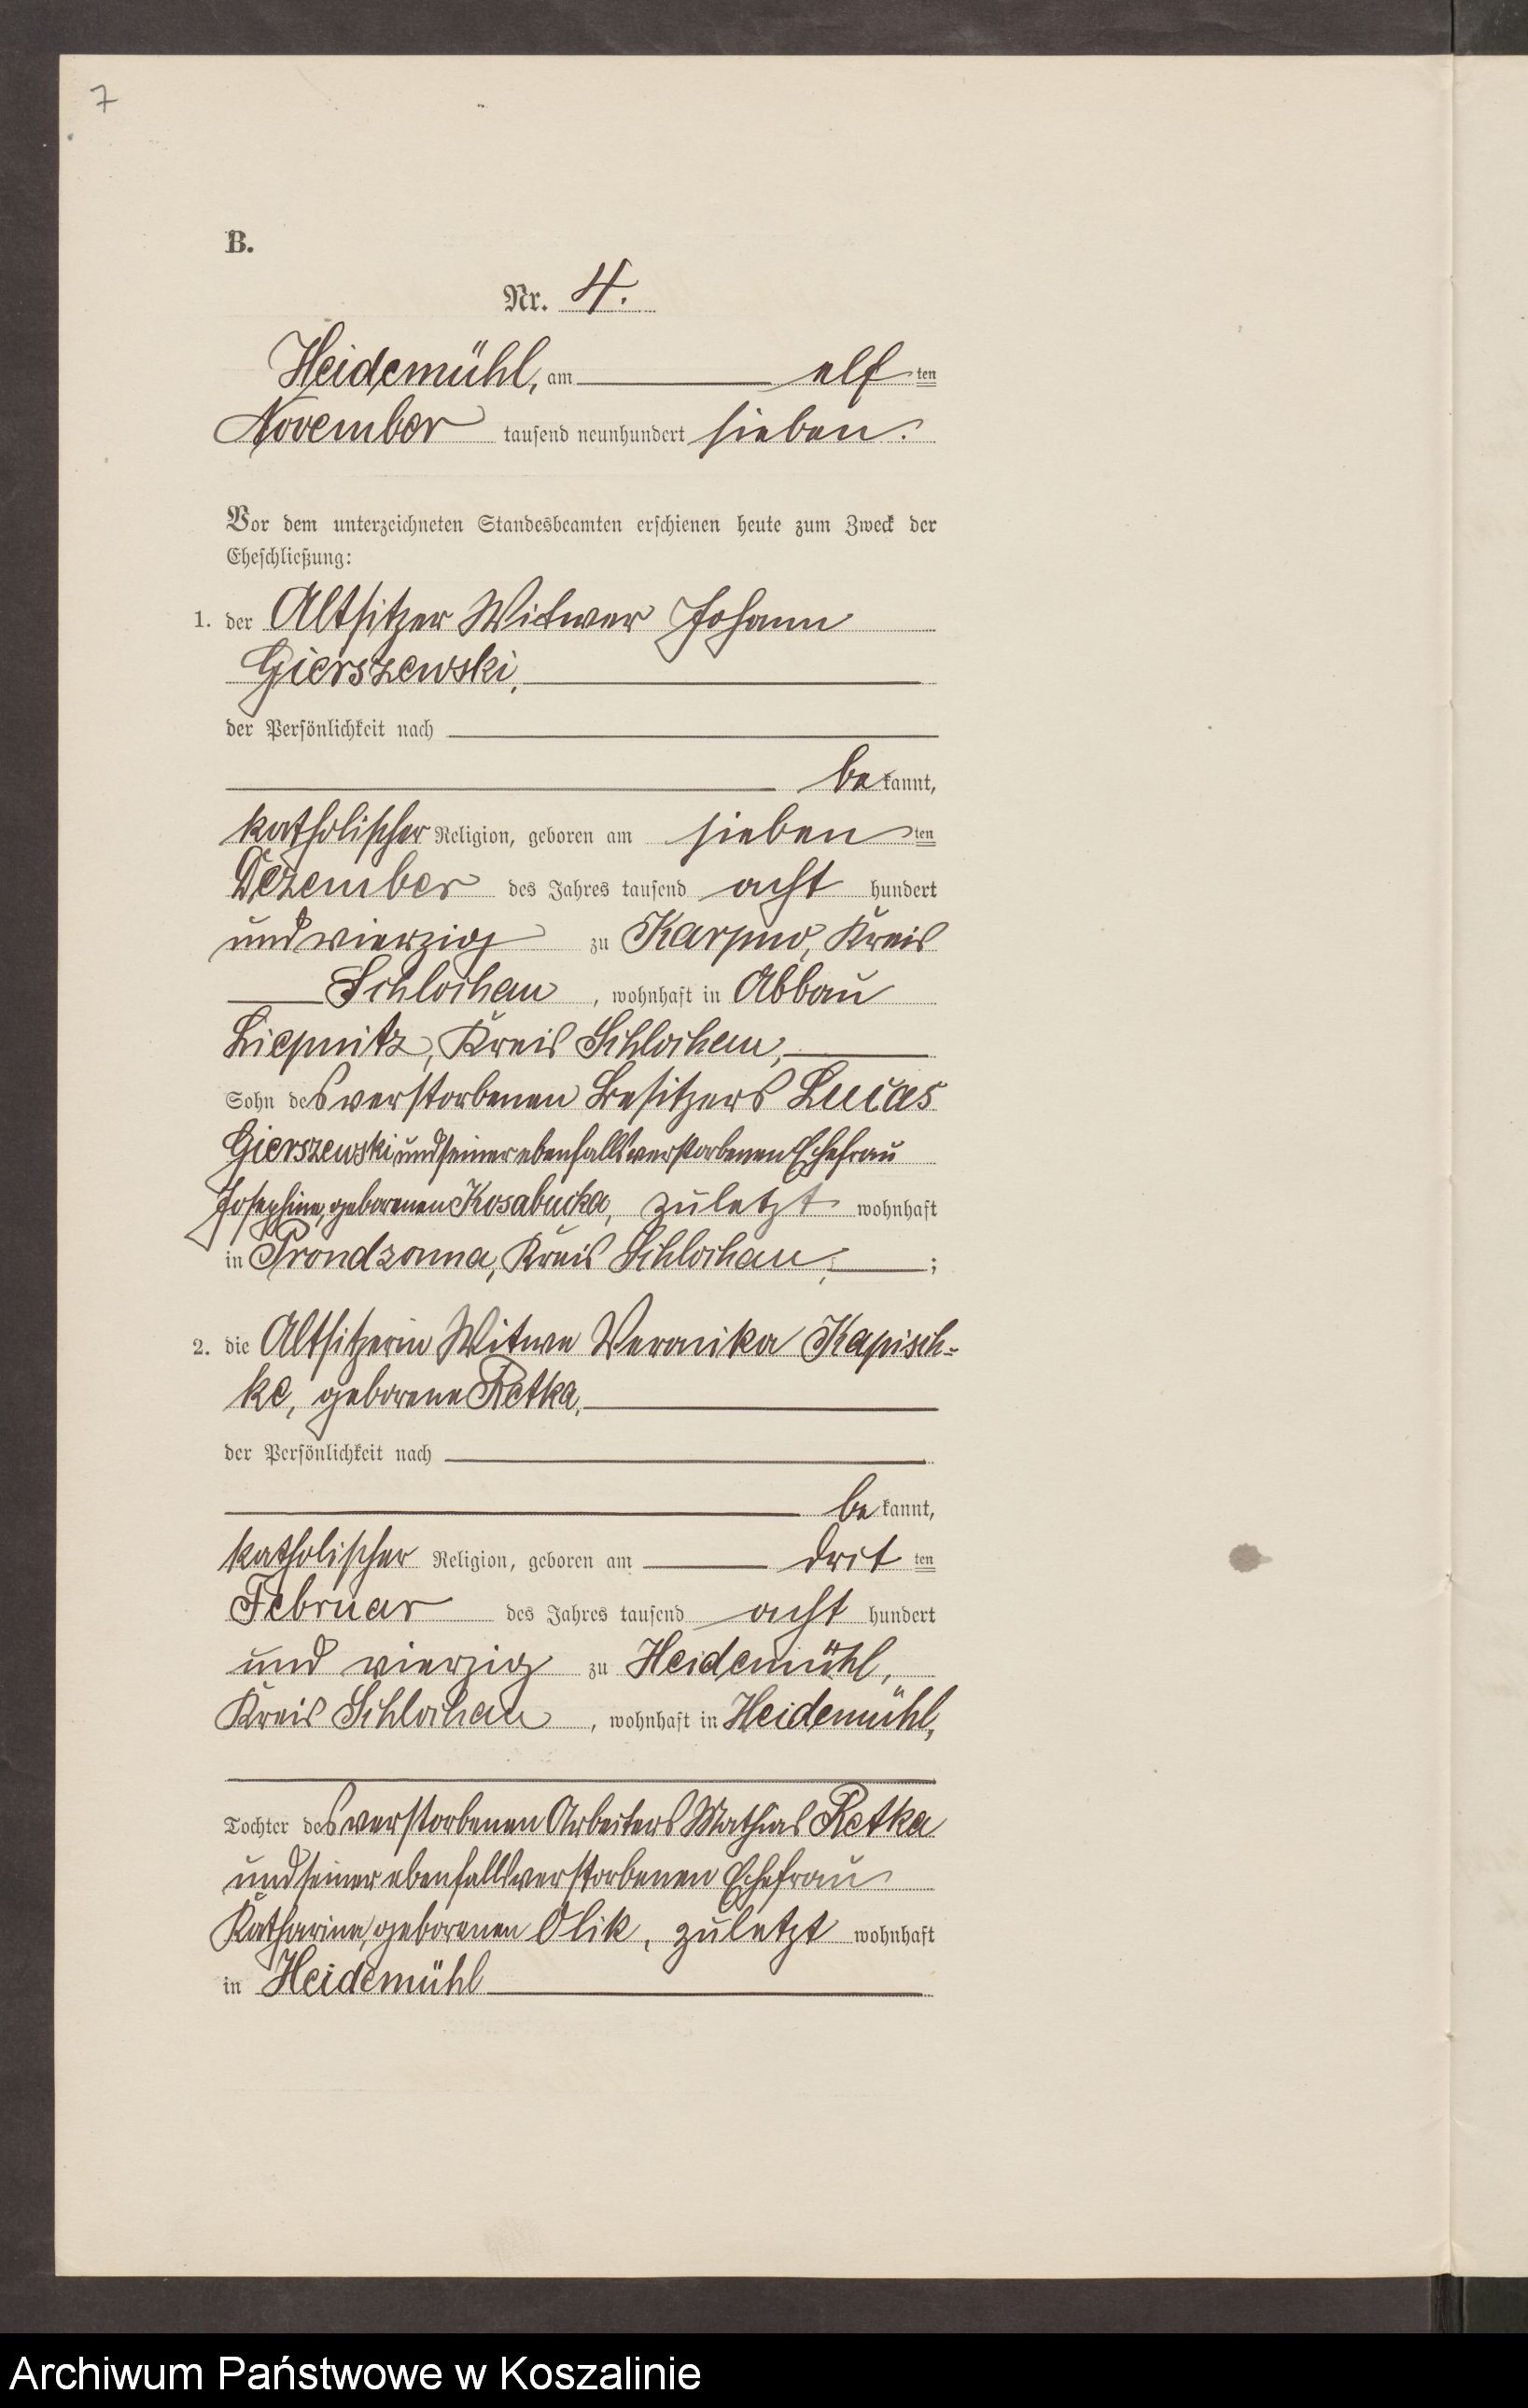 7
B.
Nr. 4.
Heidemühl, am elf ten
November tausend neunhundert sieben.
Vor dem unterzeichneten Standesbeamten erschienen heute zum Zweck der
Eheschließung:
1. der Altsitzer Witwer Johann
Gierszewski,
der Persönlichkeit nach
be kannt,
katholischer Religion, geboren am sieben ten
Dezember des Jahres tausend acht hundert
und vierzig zu Karpno, Kreis
Schlochau, wohnhaft in Abbau
Liepnitz, Kreis Schlochau,
Sohn des verstorbenen Besitzers Lucas
Gierszewski und seiner ebenfalls verstorbenen Ehefrau
Josephine, geborenen Kosabucka, zuletzt wohnhaft
in Prondzonna, Kreis Schlochau, ;
2. die Altsitzerin Witwe Veronika Kapisch-
ke, geborene Retka,
der Persönlichkeit nach
be kannt,
katholischer Religion, geboren am drit ten
Februar des Jahres tausend acht hundert
und vierzig zu Heidemühl,
Kreis Schlochau, wohnhaft in Heidemühl,
Tochter des verstorbenen Arbeiters Mathias Retka
und seiner ebenfalls verstorbenen Ehefrau
Katharina, geborenen Olik, zuletzt wohnhaft
in Heidemühl
Archiwum Państwowe w Koszalinie